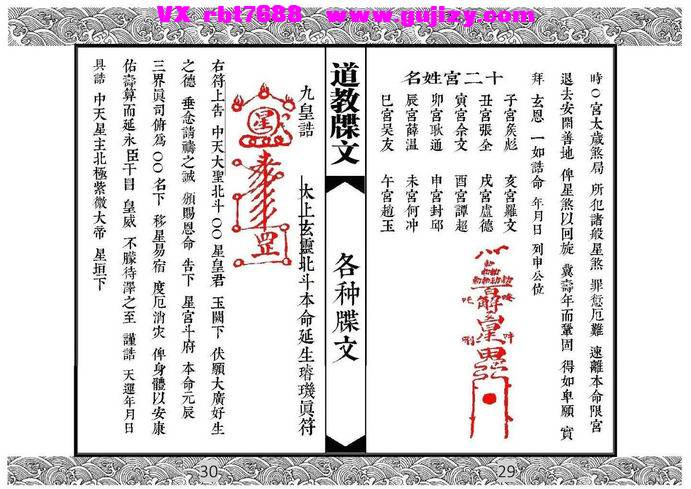 VX rbt7688 www.gujizy.com
時〇宮太歲煞局 所犯諸般星煞 罪愆厄難 速離本命限宮
退去安閑善地 俾星煞以回旋 冀壽年而鞏固 得如卑願 實
拜 玄恩 一如誥命 年月日 列申公位
十二宮姓名
子宮矦彪 亥宮羅文
丑宮張全 戌宮盧德
寅宮余文 酉宮譚超
卯宮耿通 申宮封邱
辰宮薛温 未宮何冲
巳宮吴友 午宮趙玉
29
道教牒文
各种牒文
九皇誥
太上玄靈北斗本命延生璿璣眞符
星
罡
右符上告 中天大聖北斗〇〇星皇君 玉闕下 伏願大廣好生
之德 垂念請禱之誠 頒賜恩命 告下 星宮斗府 本命元辰
三界眞司俯為〇〇名下 移星易宿 度厄消灾 俾身體以安康
佑壽算而延永 臣干冒 皇威 不朦待澤之至 謹誥 天運年月日
具誥 中天星主北極紫微大帝 星垣下
30